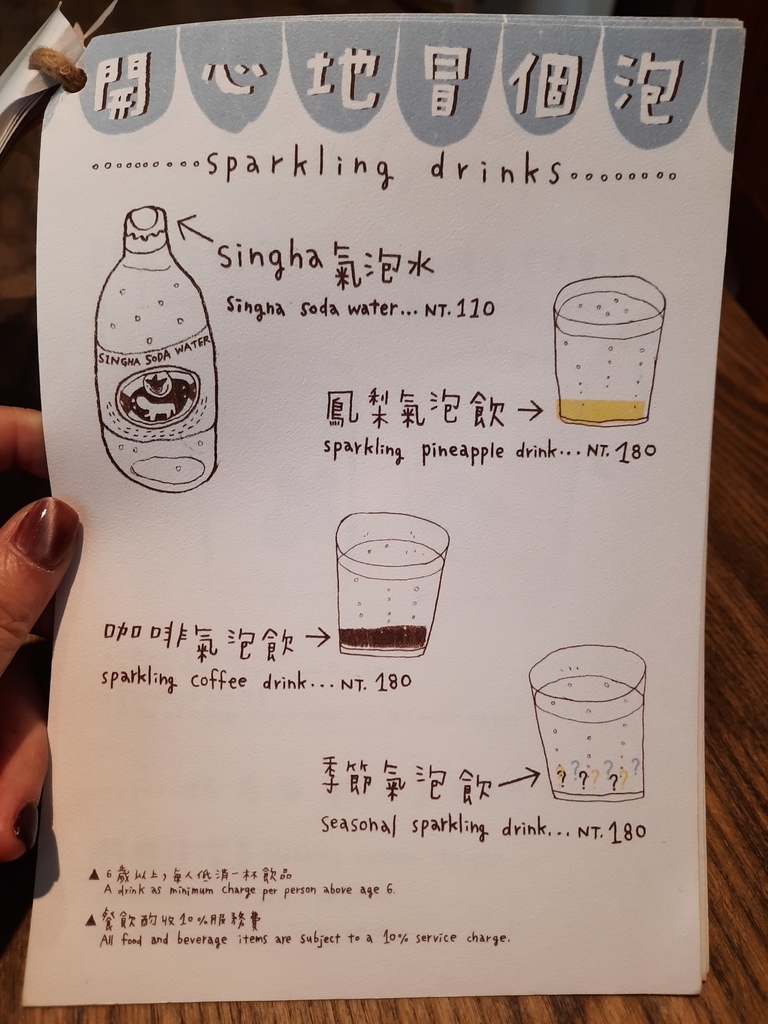 開心地冒個泡
sparkling drinks
singha 氣泡水
Singha soda water... NT. 110
SINGHA SODA WATER
鳳梨氣泡飲
sparkling pineapple drink... NT. 180
咖啡氣泡飲
sparkling coffee drink... NT. 180
季節氣泡飲
? ? ? ? ? ? ?
seasonal sparkling drink... NT. 180
▲ 6歲以上，每人低消一杯飲品
A drink as minimum charge per person above age 6.
▲ 餐飲酌收10%服務費
All food and beverage items are subject to a 10% service charge.